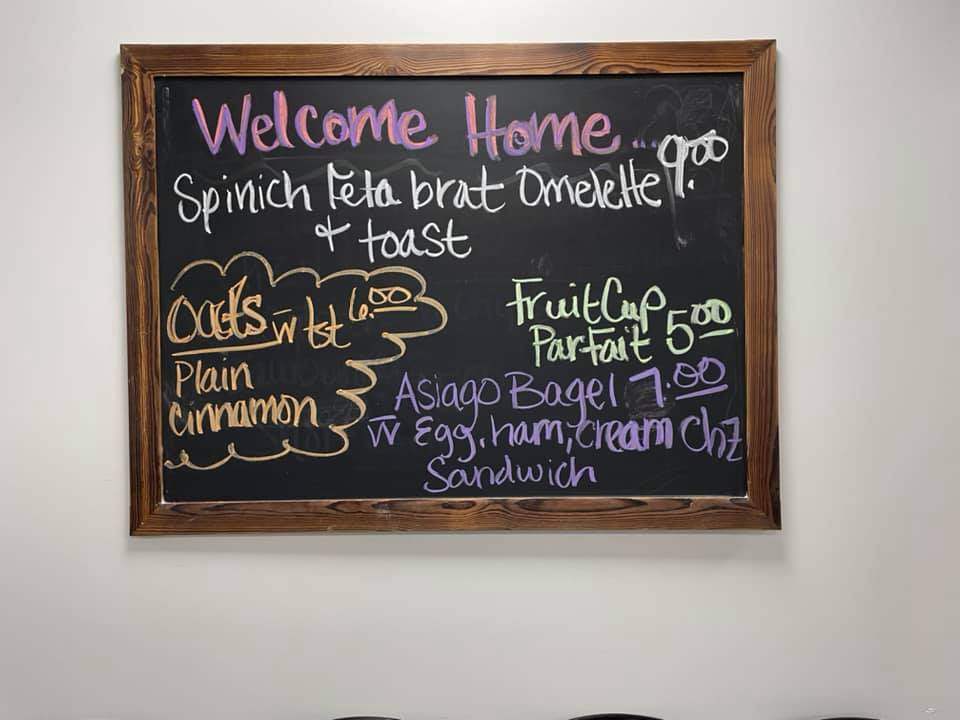 Welcome Home...
Spinich Feta brat Omelette 9.00
& toast
Oats w tst 6.00
Plain
Cinnamon
Fruit Cup
Parfait 5.00
Asiago Bagel 7.00
w Egg, ham, cream chz
Sandwich